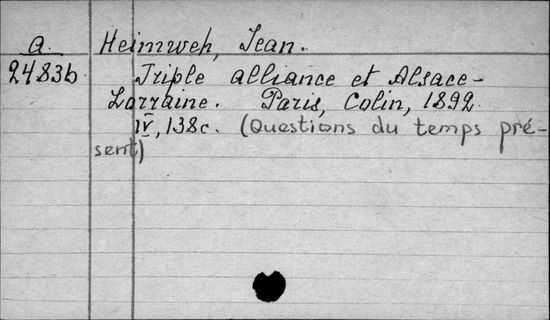 a. Heimweh, Jean.
2483b. Triple alliance et Alsace-
Lorraine. Paris, Colin, 1892.
IV, 138c. (Questions du temps pré-
sent)